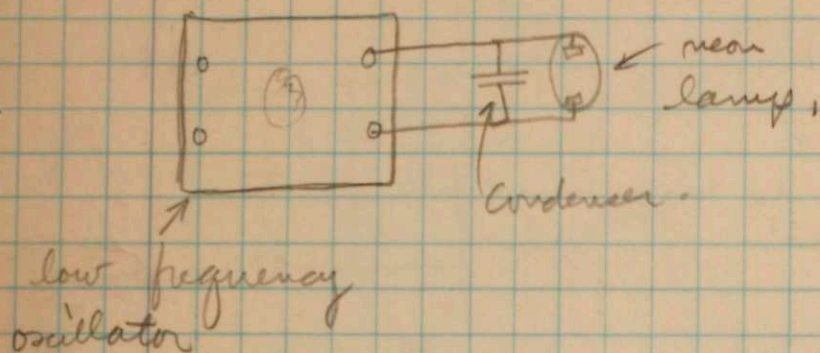 neon
lamp.
Condenser.
low frequency
oscillator